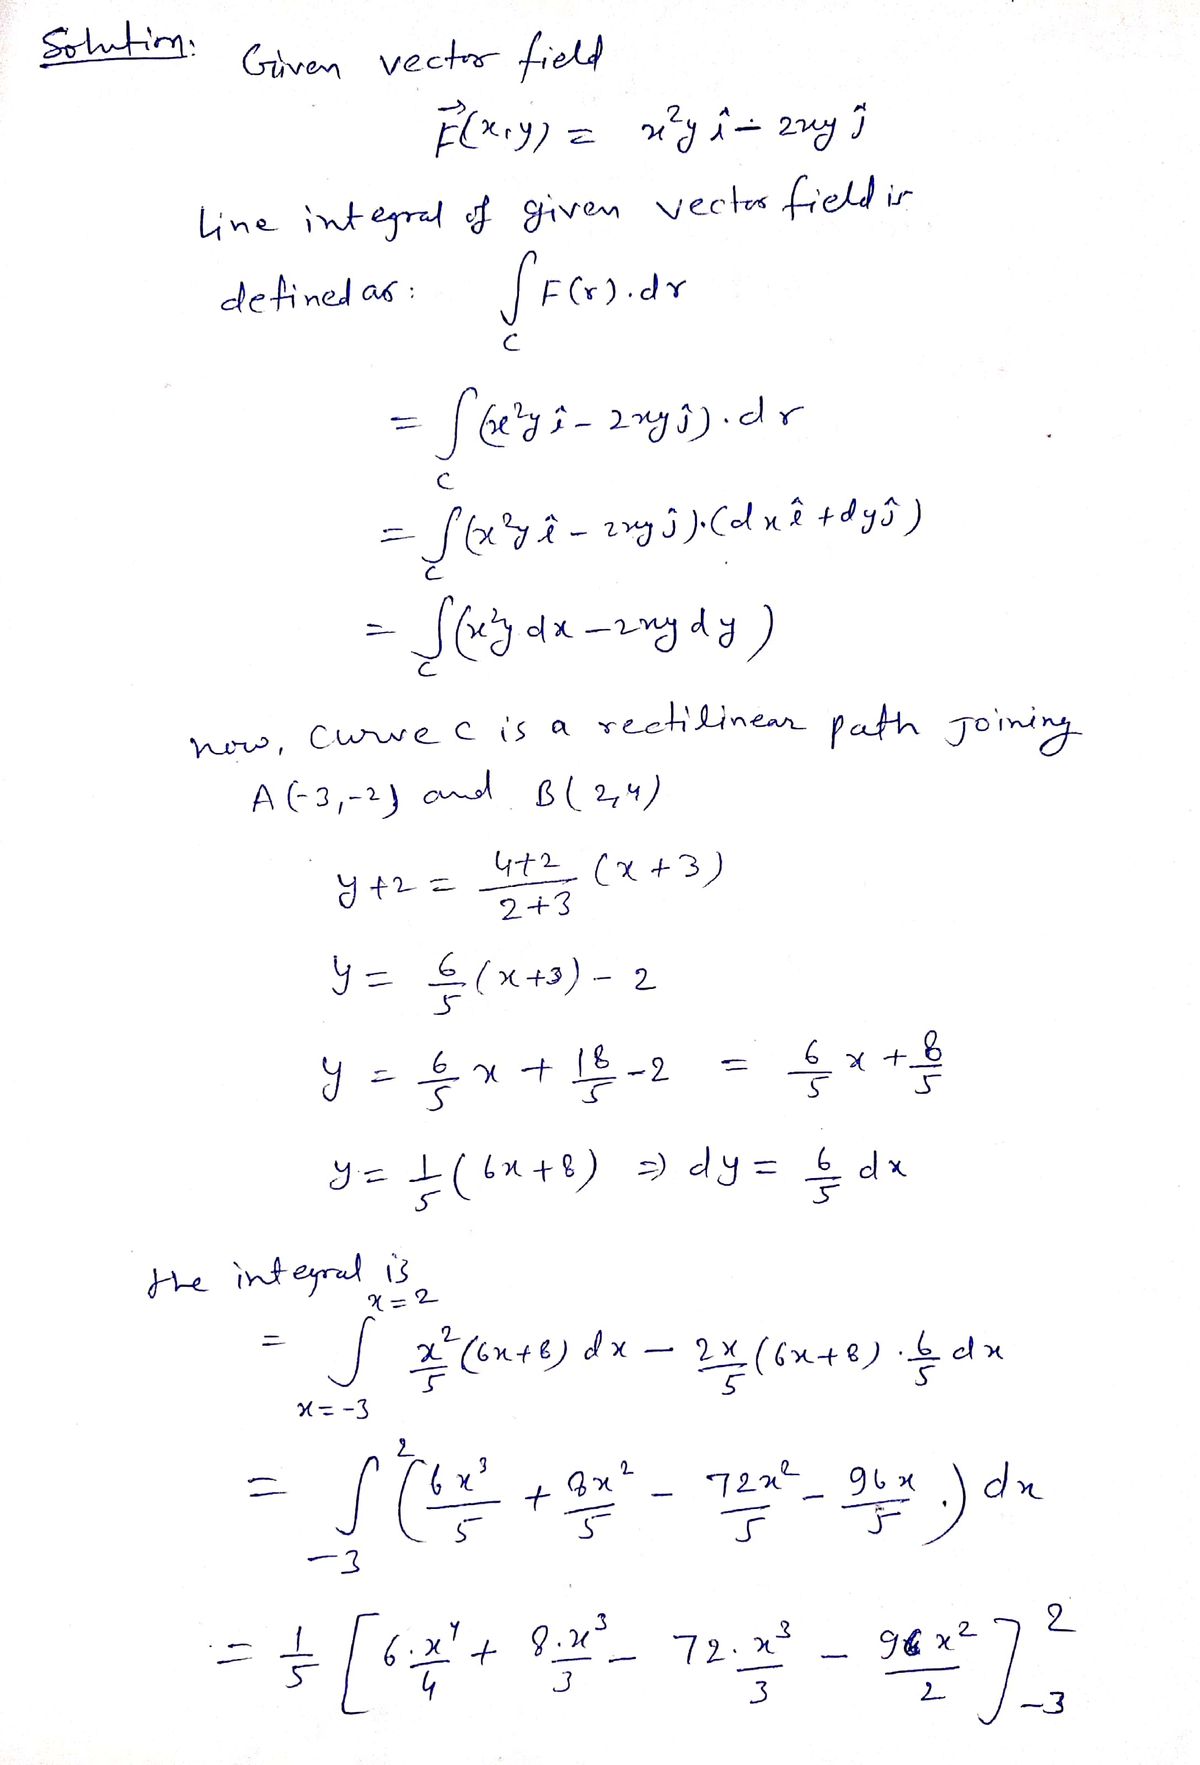 Solution: Given vector field
F⃗(x,y) = x²y î - 2xy ĵ
Line integral of given vector field is
defined as : ∫_C F(r).dr
= ∫_C (x²y î - 2xy ĵ).dr
= ∫_C (x²y î - 2xy ĵ).(dx î + dy ĵ)
= ∫_C (x²y dx - 2xy dy)
now, curve C is a rectilinear path Joining
A(-3,-2) and B(2,4)
y+2 = (4+2)/(2+3) (x+3)
y = 6/5 (x+3) - 2
y = 6/5 x + 18/5 - 2 = 6/5 x + 8/5
y = 1/5 (6x+8) ⇒ dy = 6/5 dx
the integral is
= ∫_{x=-3}^{x=2} x²/5 (6x+8) dx - 2x/5 (6x+8) . 6/5 dx
= ∫_{-3}^{2} (6x³/5 + 8x²/5 - 72x²/5 - 96x/5 .) dx
= 1/5 [6.x⁴/4 + 8.x³/3 - 72.x³/3 - 96x²/2]_{-3}^{2}